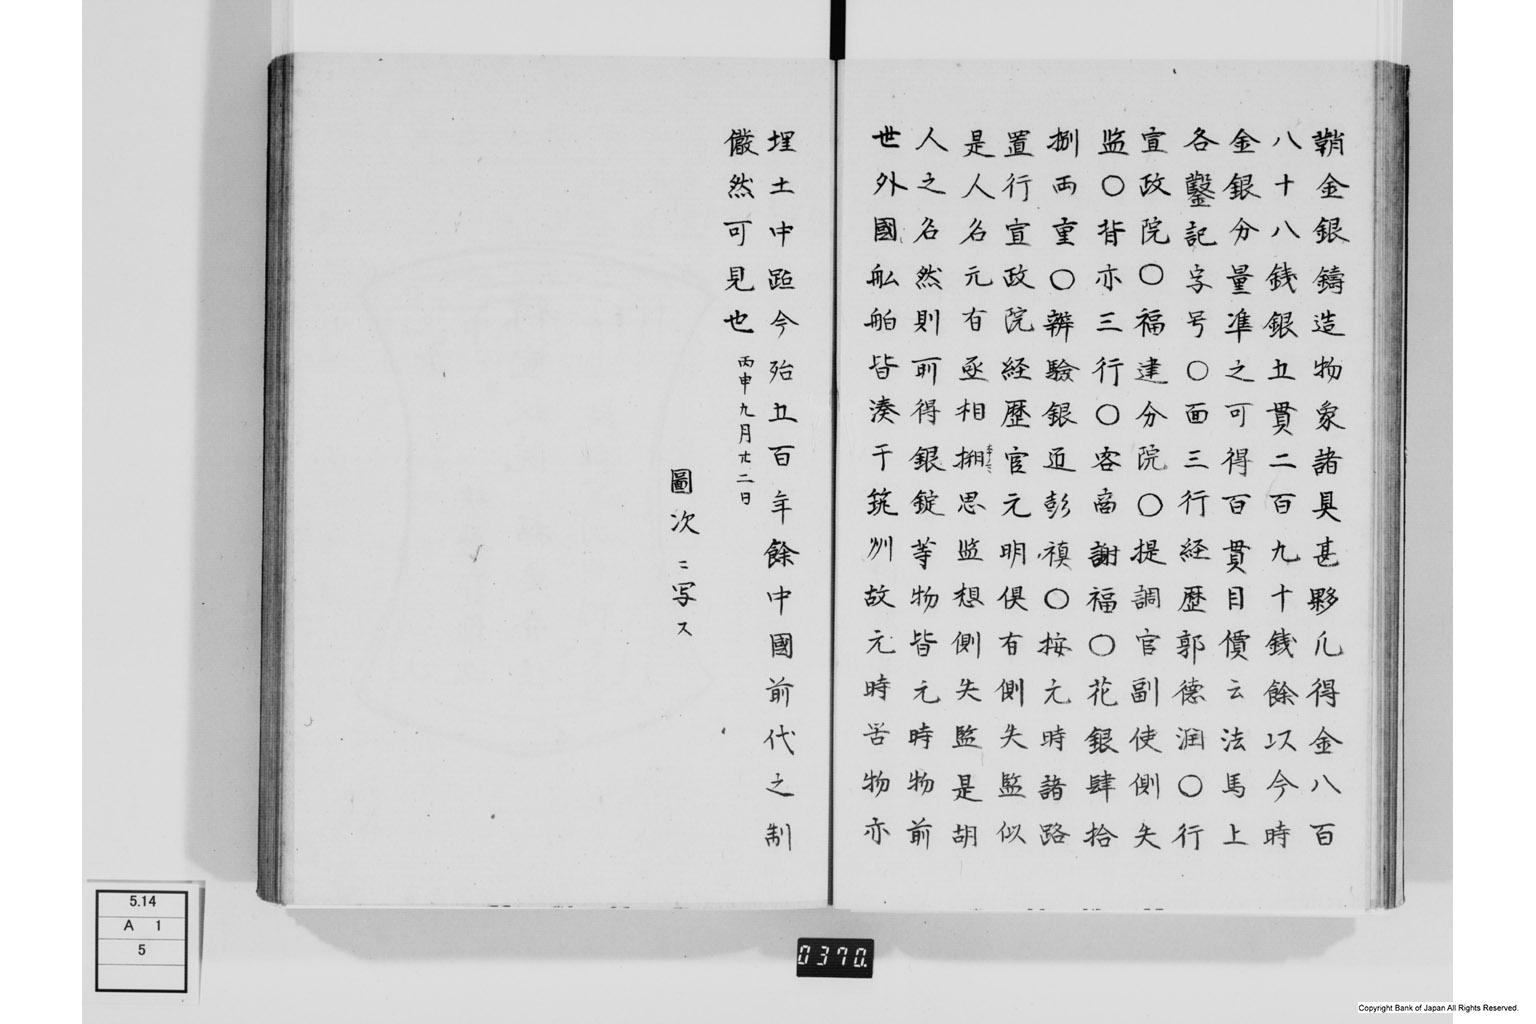 鞘金銀鑄造物象諸具甚夥凢得金八百
八十八銭銀五貫二百九十銭餘以今時
金銀分量準之可得百貫目價云法馬上
各鑿記字号〇面三行経歴郭德潤〇行
宣政院〇福建分院〇提調官副使側失
监〇背亦三行〇客商謝福〇花銀肆拾
捌両重〇辨驗銀匠彭禎〇按元時諸路
置行宣政院経歴官元明俱有側失監似
是人名元有亟相搠思监想側失監是胡
人之名然則所得銀錠等物皆元時物前
世外國舩舶皆湊于筑州故元時苦物亦
埋土中距今殆五百年餘中國前代之制
儼然可見也 丙申九月廿二日
圖次ニ写ス
5.14
A 1
5
0370.
Copyright Bank of Japan All Rights Reserved.